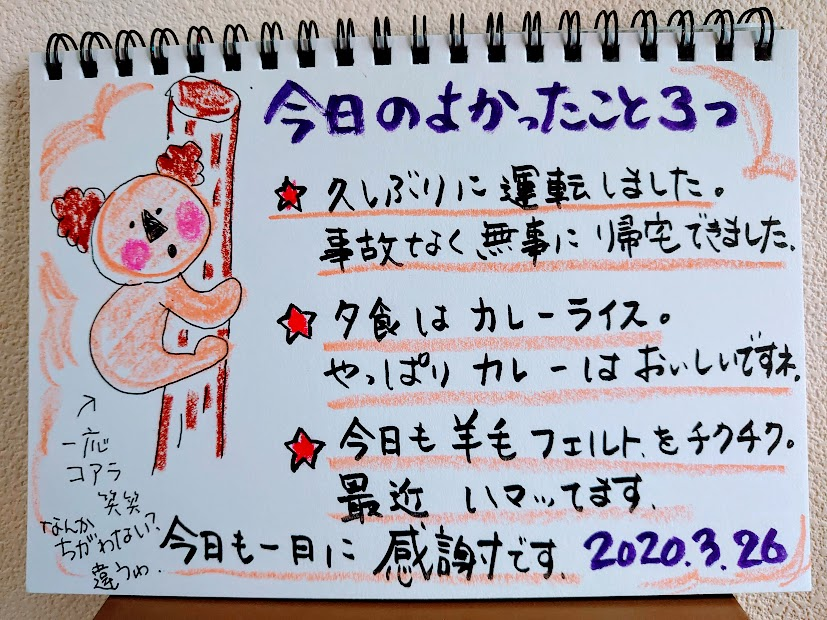 今日のよかったこと3つ
★久しぶりに運転しました。
事故なく無事に帰宅できました.
★夕食はカレーライス。
やっぱりカレーはおいしいですネ.
★今日も羊毛フェルトをチクチク。
最近 ハマッてます.
今日も一日に感謝です.
2020.3.26
↑
一応
コアラ
笑笑
なんか
ちがわない?
違うわ.